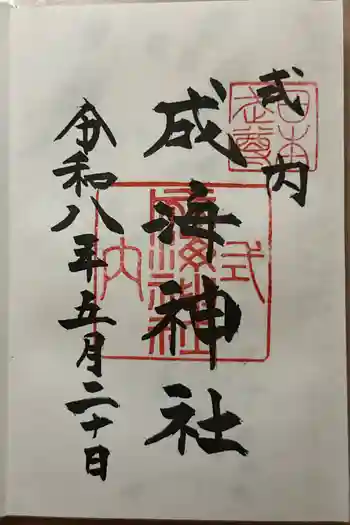 式内
成海神社
令和八年五月二十日
式内
成海神社